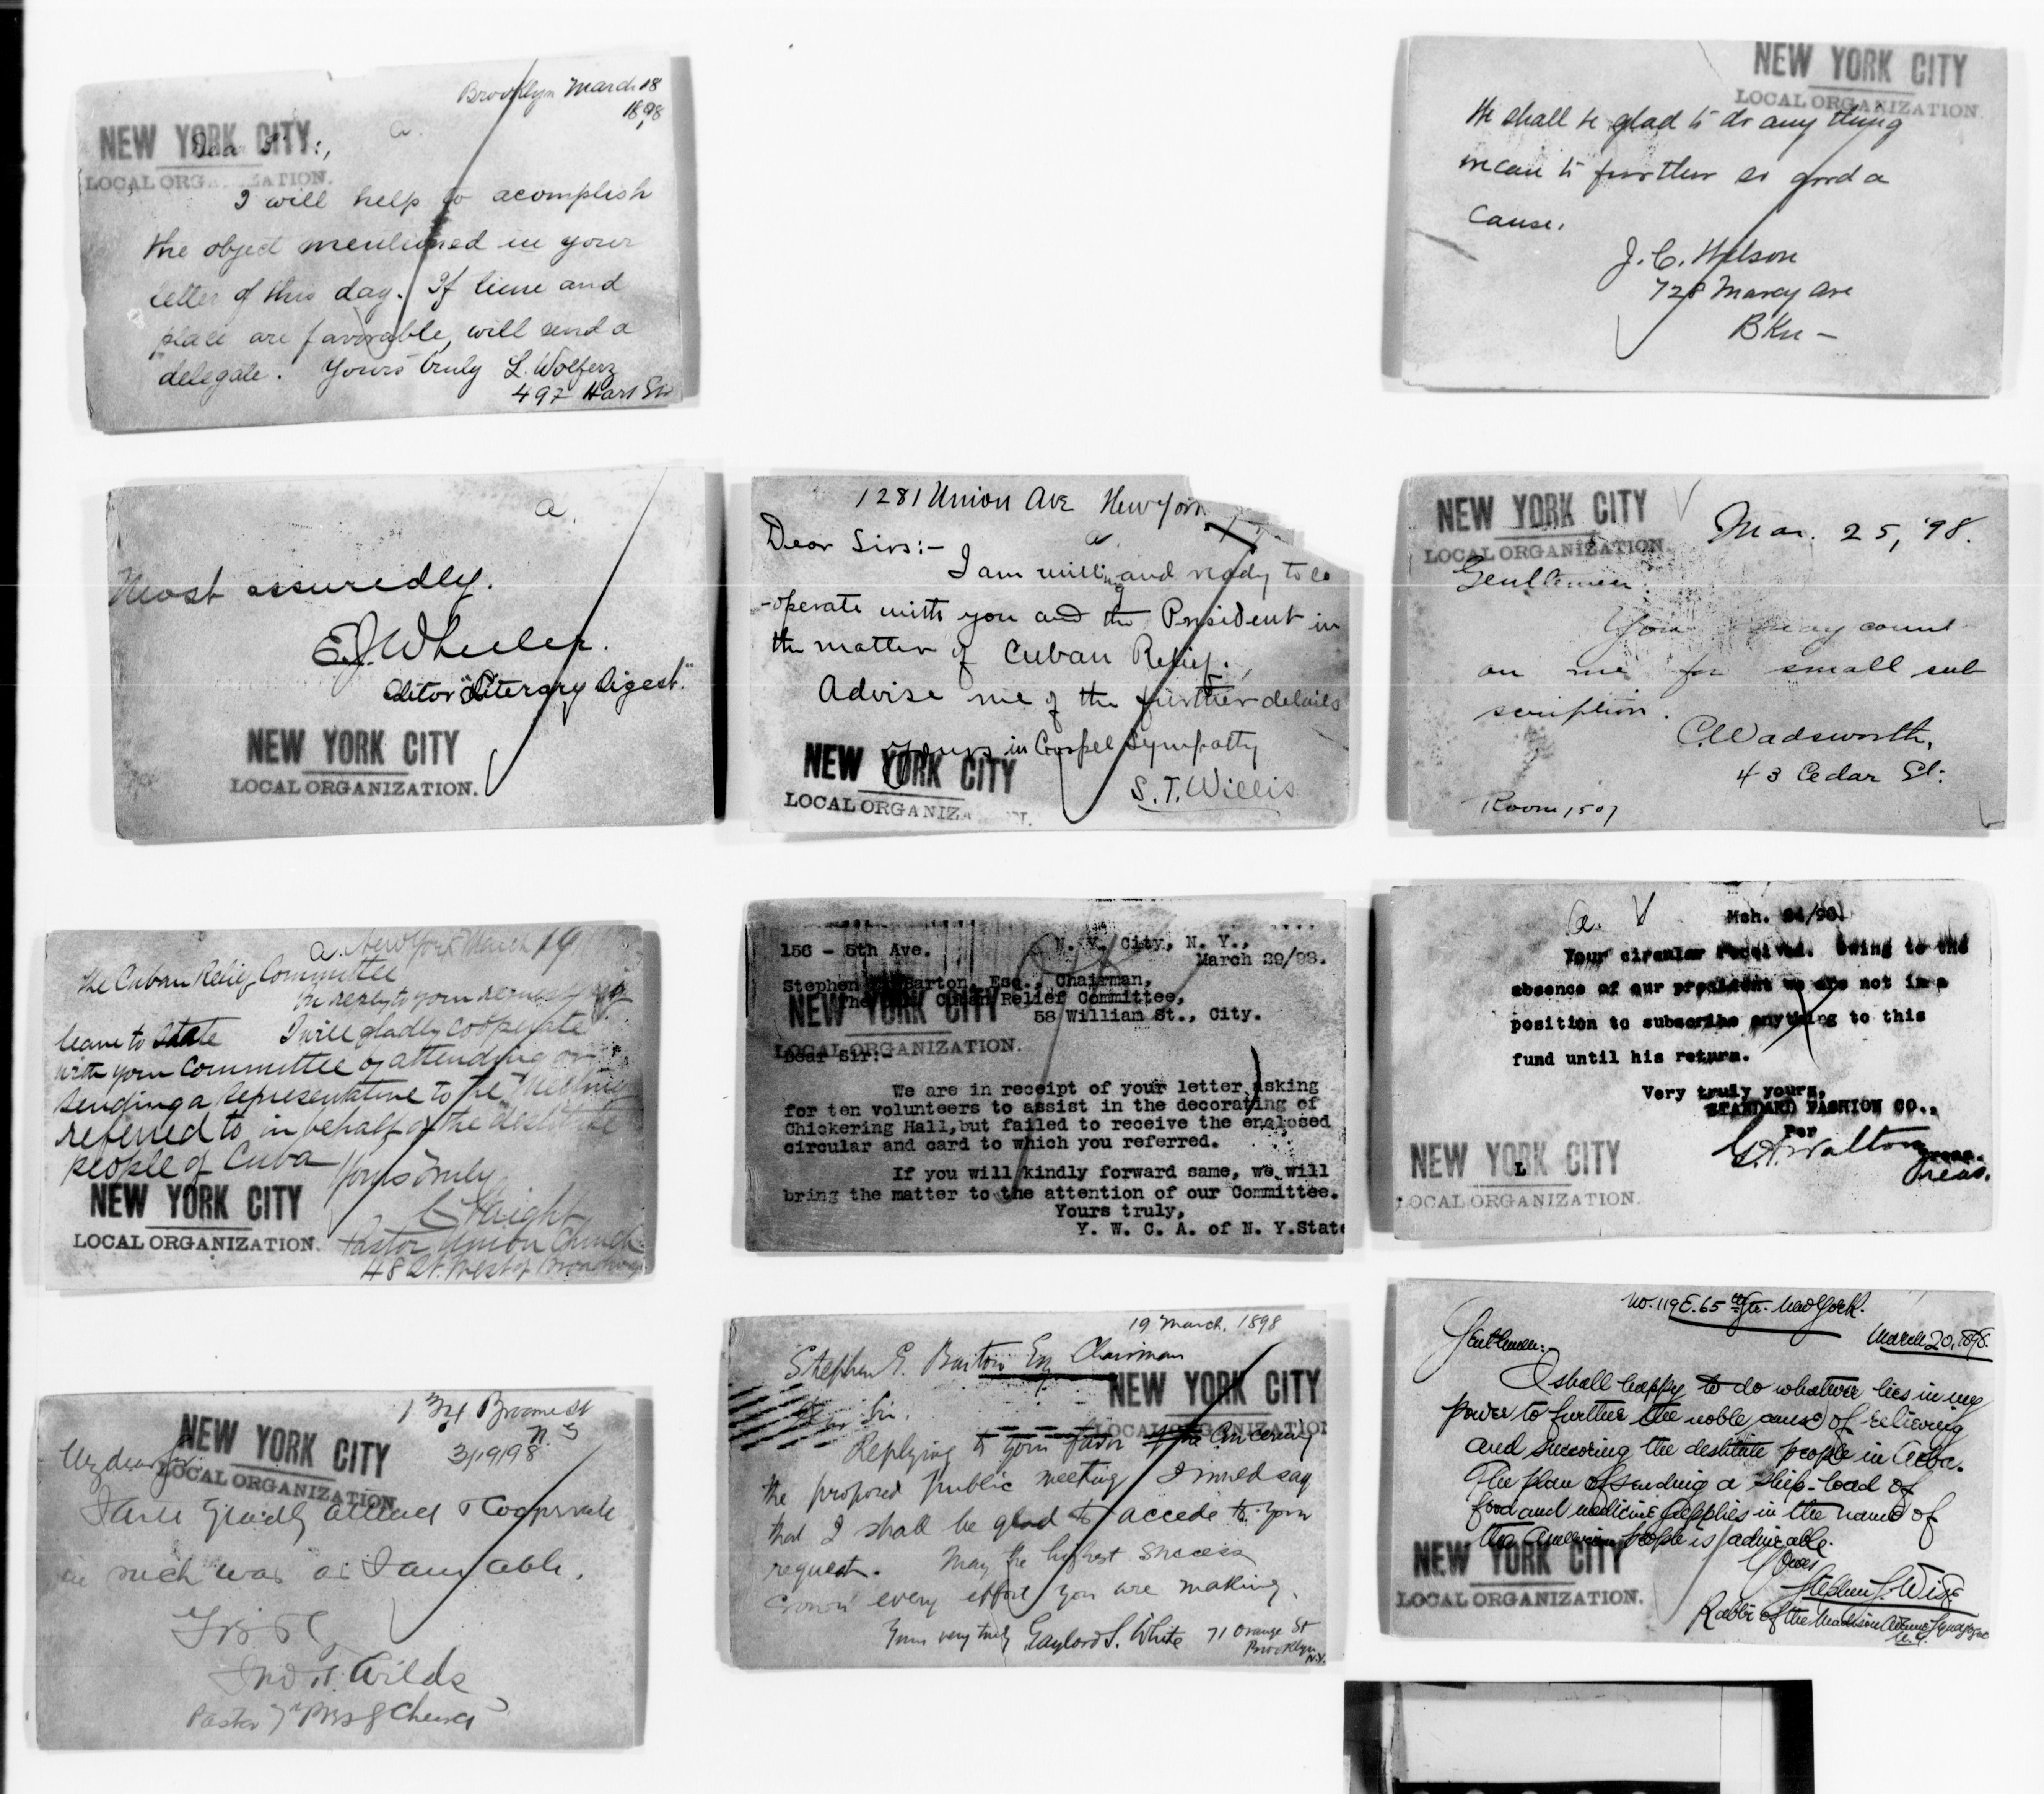 Brooklyn March 18
1898
NEW YORK CITY
LOCAL ORGANIZATION.
Dear Sir:,
a.
I will help to acomplish
the object mentioned in your
letter of this day. If time and
place are favorable, will send a
delegate. Yours truly L. Wolferz
497 Hart Str
NEW YORK CITY
LOCAL ORGANIZATION.
We shall be glad to do any thing
we can to further so good a
cause.
J. C. Wilson
728 Marcy Ave
BKn -
a.
Most assuredly.
E.J. Wheeler.
Editor "Literary Digest."
NEW YORK CITY
LOCAL ORGANIZATION.
1281 Union Ave New York
Dear Sirs:-
a.
I am willing and ready to co
-operate with you and the President in
the matter of Cuban Relief.
Advise me of the further details
Yours in Gospel Sympathy
S. T. Willis
NEW YORK CITY
LOCAL ORGANIZATION.
NEW YORK CITY
LOCAL ORGANIZATION.
Mar. 25, '98.
Gentlemen:
You may count
on me for small sub
scription.
C. Wadsworth,
43 Cedar St:
Room 1507
a. New York March 19
The Cuban Relief Committee
In reply to your request
leave to state I will gladly cooperate
with your Committee of attending or
sending a representative to the meeting
referred to in behalf of the destitute
people of Cuba
Yours Truly
Haight
Pastor Union Church
48 St. West of Broadway
NEW YORK CITY
LOCAL ORGANIZATION.
156 - 5th Ave.
N. Y. City, N. Y.,
March 29/98.
Stephen E. Barton, Esq., Chairman,
The Cuban Relief Committee,
58 William St., City.
NEW YORK CITY
LOCAL ORGANIZATION.
Dear Sir:-
We are in receipt of your letter asking
for ten volunteers to assist in the decorating of
Chickering Hall,but failed to receive the enclosed
circular and card to which you referred.
If you will kindly forward same, we will
bring the matter to the attention of our Committee.
Yours truly,
Y. W. C. A. of N. Y.State
a.
Mch. 24/98.
Your circular received. Owing to the
absence of our president we are not in a
position to subscribe anything to this
fund until his return.
Very truly yours,
STANDARD FASHION CO.,
Per
G. A. Walton
Treas.
NEW YORK CITY
LOCAL ORGANIZATION.
134 Broome St
N.Y.
3/19/98
NEW YORK CITY
LOCAL ORGANIZATION
My dear Sir
I will gladly attend & Cooperate
in such way as I am able.
Jno. T. Wilds
Pastor 7th Presb Church
19 March, 1898
Stephen E. Barton Esq Chairman
NEW YORK CITY
LOCAL ORGANIZATION
Dear Sir.
Replying to your favor concerning
the proposed public meeting I would say
that I shall be glad to accede to your
request. May the highest success
crown every effort you are making.
Yours very truly Gaylord S. White 71 Orange St
Brooklyn
N.Y.
No. 119 E. 65th St. New York.
March 20, 1898.
Gentlemen:
I shall happy to do whatever lies in my
power to further the noble cause of relieving
and succoring the destitute people in Cuba.
The plan of sending a ship-load of
food and medicine supplies in the name of
the American people is admirable.
Yours
Stephen S. Wise
Rabbi of the Madison Avenue Synagogue
N.Y.
NEW YORK CITY
LOCAL ORGANIZATION.